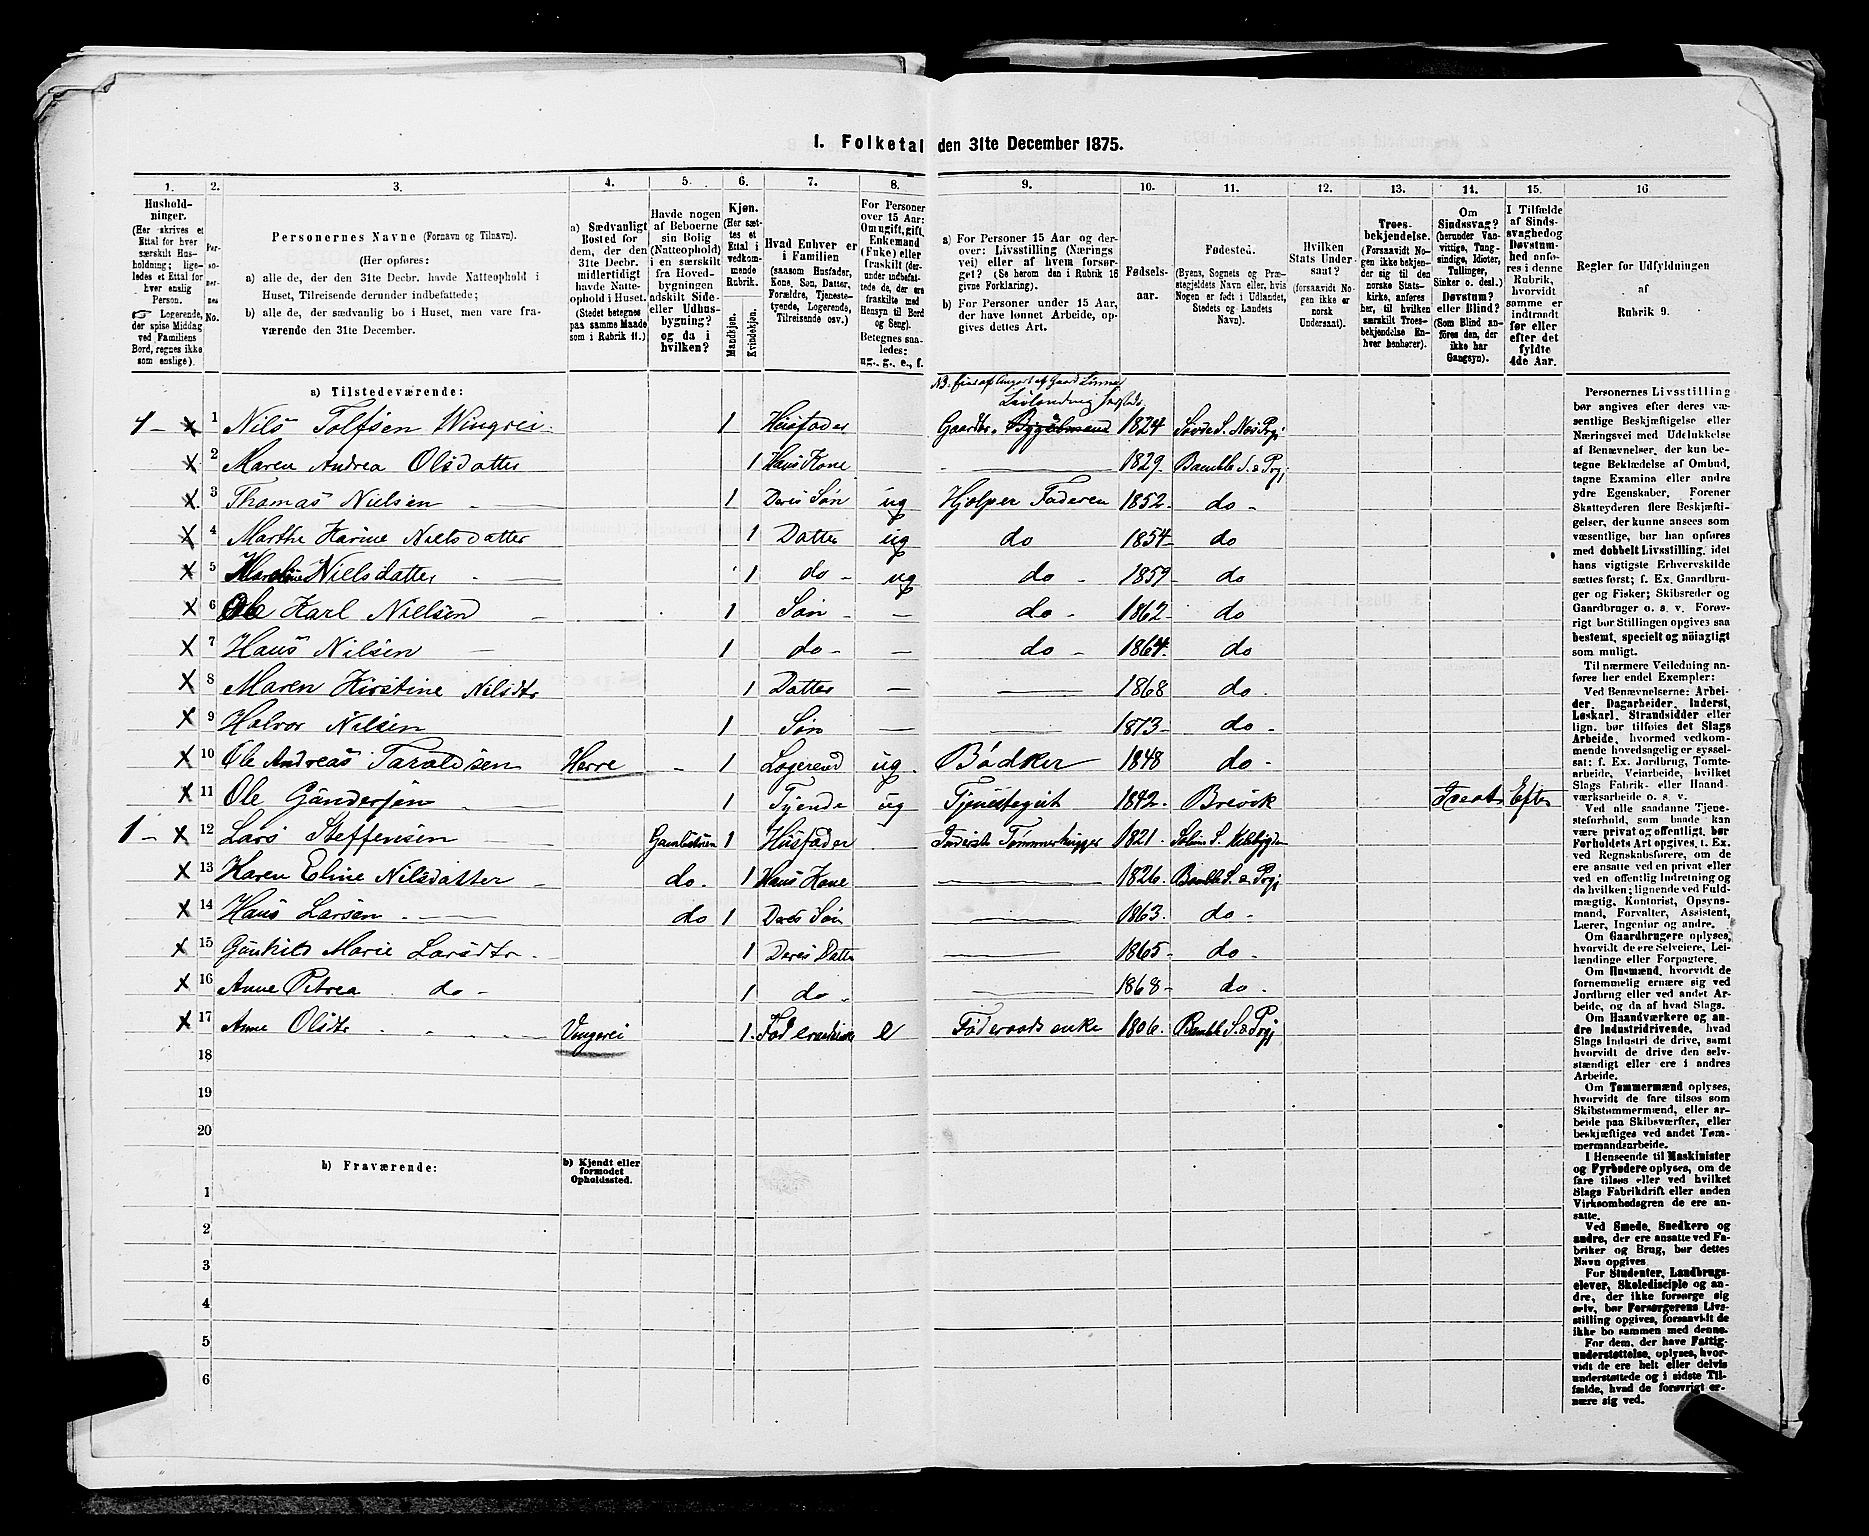 I. Folketal den 31te December 1875.
1. 2. 3. 4. 5. 6. 7. 8. 9. 10. 11. 12. 13. 14. 15. 16
Hushold-
ninger.
(Her skrives et
Ettal for hver
særskilt Hus-
holdning; lige-
ledes et Ettal
for enslig
Person.
☞ Logerende,
der spise Middag
ved Familiens
Bord, regnes ikke
som enslige).
Per-
so-
ner-
nes
No.
Personernes Navne (Fornavn og Tilnavn).
(Her opføres:
a) alle de, der den 31te Decbr. havde Natteophold i
Huset, Tilreisende derunder indbefattede;
b) alle de, der sædvanlig bo i Huset, men vare fra-
værende den 31te December.
a) Sædvanligt
Bosted for
dem, der den
31te Decbr.
midlertidigt
havde Natte-
ophold i Huset.
(Stedet betegnes
paa samme Maade
som i Rubrik 11.)
Havde nogen
af Beboerne
sin Bolig
(Natteophold)
i en særskilt
fra Hoved-
bygningen
adskilt Side-
eller Udhus-
bygning?
og da i
hvilken?
Kjøn.
(Her sæt-
tes et
Ettal i
vedkom-
mende
Rubrik.
Mandkjøn.
Kvindekjøn.
Hvad Enhver er
i Familien
(saasom Husfader,
Kone, Søn, Datter,
Forældre, Tjeneste-
tyende, Logerende,
Tilreisende osv.)
For Personer
over 15 Aar:
Om ugift, gift,
Enkemand
(Enke) eller
fraskilt (der-
under indbefat-
tede de, der ere
fraskilte med
Hensyn til Bord
og Seng).
Betegnes saa-
ledes:
ug., g., e., f.
a) For Personer 15 Aar og der-
over: Livsstilling (Nærings
vei) eller af hvem forsør-
get? (Se herom den i Rubrik 16
givne Forklaring).
b) For Personer under 15 Aar,
der have lønnet Arbeide, op-
gives dettes Art.
Fødsels-
aar.
Fødested.
(Byens, Sognets og Præ-
stegjeldets Navn eller, hvis
Nogen er født i Udlandet,
Stedets og Landets
Navn).
Hvilken
Stats Under-
saat?
(forsaavidt No-
gen ikke er
norsk
Undersaat).
Troes-
bekjendelse.
(Forsaavidt No-
gen ikke bekjen-
der sig til den
norske Stats-
kirke, anføres
her, til hvilken
særskilt Troes-
bekjendelse En-
hver henhører).
Om
Sindssvag?
(herunder Van-
vittige, Tung-
sindige, Idioter,
Tullinger,
Sinker o. desl.)
Døvstum?
eller Blind?
(Som Blind an-
føres den, der
ikke har
Gangsyn).
I Tilfælde
af Sinds-
svaghed og
Døvstum-
hed anfø-
res i denne
Rubrik,
hvorvidt
samme er
indtraadt
før eller
efter det
fyldte
4de Aar.
Regler for Udfyldningen
af
Rubrik 9.
a) Tilstedeværende:
1 Nils Tolfsen Wingrei. 1 Husfader Gaardbr. 1824
2 Maren Andrea Olsdatter 1 Huus Kone 1829. Bamble S. & Prgj
3 Thomas Nielsen 1 Deres Søn ug Hjelper Faderen 1852 do
4 Marthe Karine Nielsdatter 1 Datter ug do 1854 do
5 Nielsdatter 1 do ug do 1859 do
6 Ole Karl Nielsen 1 Søn — do 1862 do
7 Hans Nilsen 1 do — do 1864. do
8 Maren Kirstine Nilsdtr 1 Datter — 1868 do
9 Halvor Nilsen 1 Søn — 1873 do
10 Ole Andreas Taraldsen Herre 1 Logerend ug Bødker 1848 do
11 Ole Gundersen 1 Tyende ug Tjenstegut 1842 Brevik Efter
1 12 Lars Steffensen 1 Husfader Inderst Tømmerhugger 1821.
13 Karen Eline Nilsdatter do. 1 Huus Kone 1826. Bamble S. & Prgj
14 Hans Larsen do 1 Deres Søn 1863. do
15 Gunhild Marie Larsdtr. 1 Deres Datter 1865 do
16 Anne Petrea do 1 do 1868 do
17 Anne Olsdtr Vingrei 1 e Føderaadsenke 1806. Bamble S. & Prgj
18
19
20
b) Fraværende:
b) Kjendt eller
formodet
Opholdssted.
1
2
3
4
5
6
Personernes Livsstilling
bør angives efter deres væ-
sentlige Beskjæftigelse eller
Næringsvei med Udelukkelse
af Benævnelser, der kun be-
tegne Beklædelse af Ombud,
tagne Examina eller andre
ydre Egenskaber. Forener
Skatteyderen flere Beskjæfti-
gelser, der kunne ansees som
væsentlige, bør han opføres
med dobbelt Livsstilling, idet
hans vigtigste Erhvervskilde
sættes først; f. Ex. Gaardbru-
ger og Fisker; Skibsreder og
Gaardbruger o. s. v. Forøv-
rigt bør Stillingen opgives saa
bestemt, specielt og nöiagtigt
som muligt.
Til nærmere Veiledning an-
føres her endel Exempler:
Ved Benævnelserne: Arbei-
der, Dagarbeider, Inderst,
Løskarl, Strandsidder eller
lign. bør tilføies det Slags
Arbeide, hvormed vedkom-
mende hovedsagelig er syssel-
sat: f. Ex. Jordbrug, Tømte-
arbeide, Veiarbeide, hvilket
Slags Fabrik- eller Haand-
værksarbeide o. s. v.
Ved alle saadanne Tjene-
steforhold, som baade kan
være privat og offentligt, bør
Forholdets Art opgives, t. Ex.
ved Regnskabsførere, om de
ere ansatte ved en privat eller
ved en offentlig Indretning og
da hvilken; lignende ved Fuld-
mægtig, Kontorist, Opsyns-
mand, Forvalter, Assistent,
Lærer, Ingeniør og andre.
Om Gaardbrugere oplyses,
hvorvidt de ere Selveiere, Lei-
lændinge eller Forpagtere.
Om Husmænd, hvorvidt de
fornemmelig ernære sig ved
Jordbrug eller ved andet Ar-
beide, og da af hvad Slags.
Om Haandværkere og an-
dre Industridrivende, hvad
Slags Industri de drive, samt
hvorvidt de drive den selv-
stændigt eller ere i andres
Arbeide.
Om Tømmermænd oplyses,
hvorvidt de fare tilsøs som
Skibstømmermænd, eller ar-
beide paa Skibsværfter, eller
beskjæftiges ved andet Tøm-
mermandsarbeide.
I Henseende til Maskinister
og Fyrbødere oplyses, om de
fare tilsøs eller ved hvilket
Slags Fabrikdrift eller anden
Virksombedsgren de ere an-
satte.
Ved Smede, Snedkere og
andre, der ere ansatte ved Fa-
briker og Brug, bør dettes
Navn opgives.
For Studenter, Landbrugs-
elever, Skoledisciple og an-
dre, der ikke forsørge sig
selv, bør Forsørgerens Livs-
stilling opgives, forsaavidt de
ikke bo sammen med denne.
For dem, der have Fattig-
understøttelse, oplyses, hvor-
vidt de ere helt eller delvis
understøttede og i sidste Til-
fælde, hvad de forøvrigt er-
nære sig ved.